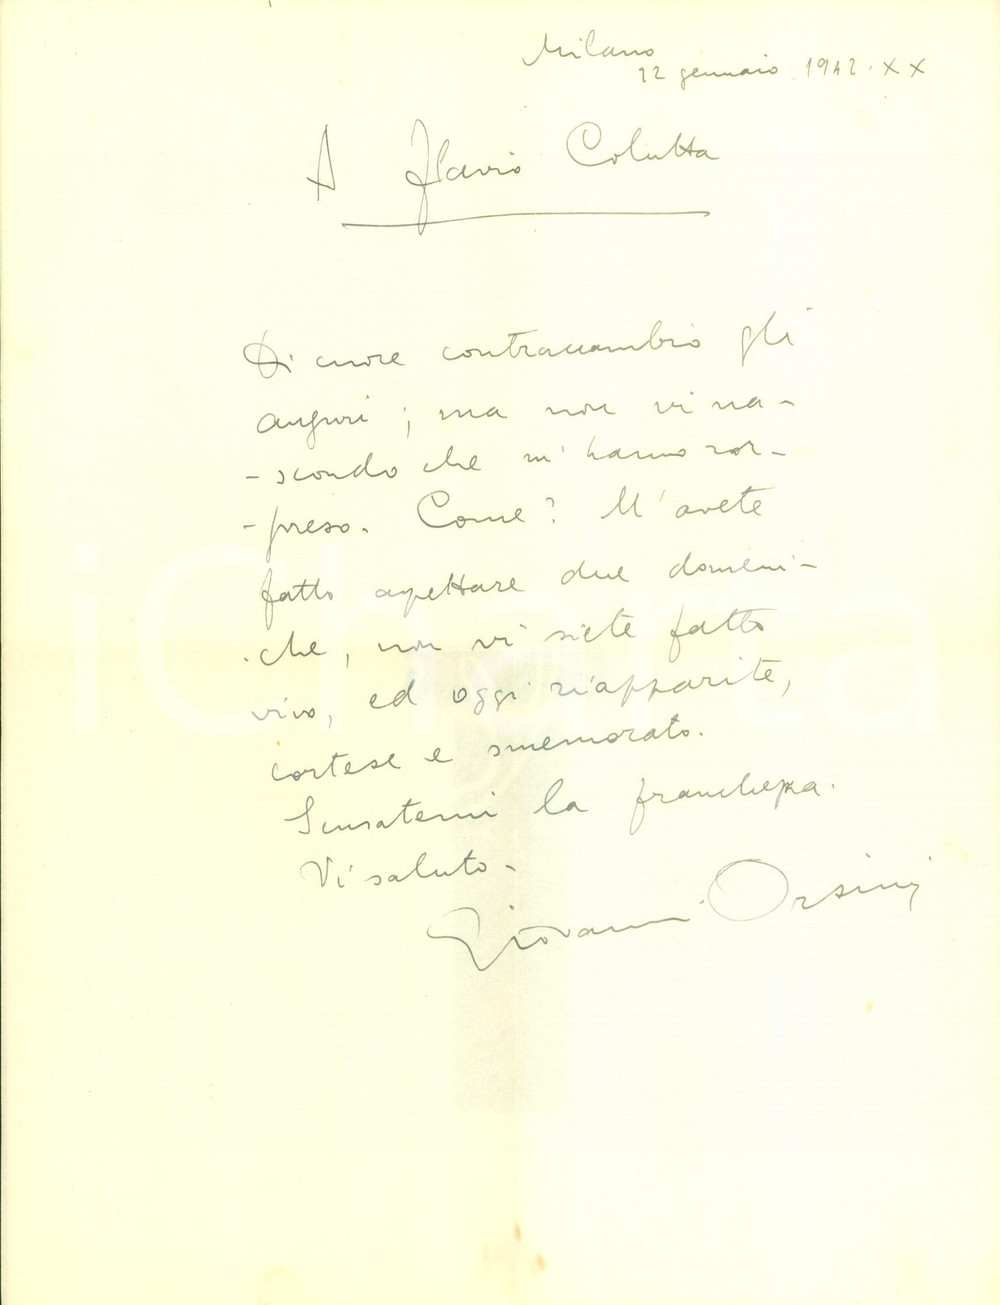 Milano
12 gennaio 1942. XX
A Flavio Colutta
Di cuore contraccambio gli
auguri; ma non vi na-
-scondo che m'hanno sor-
-preso. Come? M'avete
fatto aspettare due domeni-
-che, non vi siete fatto
vivo, ed oggi riapparite,
cortese e smemorato.
Scusatemi la franchezza.
Vi saluto-
Giovanni Orsini
iCharta